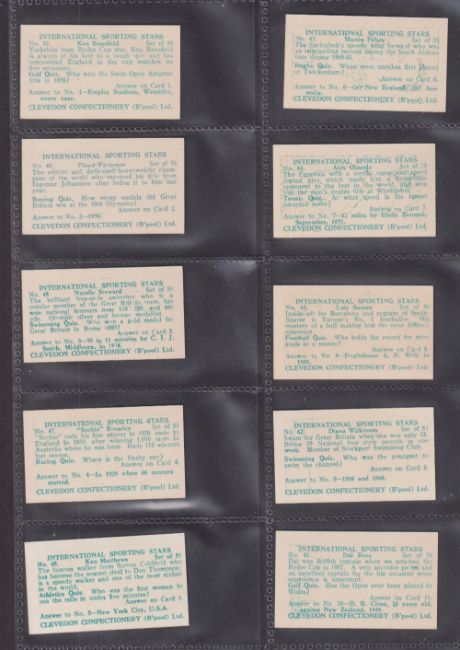 INTERNATIONAL SPORTING STARS
No. 50. Ken Bousfield Set of 50
Yorkshire born Ryder Cup star, Ken Bousfield
is always at his best in a tough spot and has
represented England in the cup matches on
five occasions.
Golf Quiz. Who won the Swiss Open Amateur
title in
Answer on Card 1.
Answer to No. 1—Empire Stadium, Wembley,
every year.
CLEVEDON CONFECTIONERY (B'pool) Ltd.
INTERNATIONAL SPORTING STARS
No. 49. Floyd Patterson Set of 50
The and dedicated heavyweight cham-
pion of the world who regained his title from
Ingemar Johansson after losing it to him last
year.
Boxing Quiz. How many medals did Great
Britain win at the Olympics?
Answer on Card 2.
Answer to No. 2—1956.
CLEVEDON CONFECTIONERY (B'pool) Ltd.
INTERNATIONAL SPORTING STARS
No. 48. Natalie Steward Set of 50
The brilliant free-style swimmer who is a
regular member of the Great British team, has
won national honours over 110, 220, and 440
yds. Olympic silver and bronze medallist.
Swimming Quiz. Who won a gold medal for
Great Britain in Rome
Answer on Card 3.
Answer to No. 3—50 in 11 minutes by C. I. J.
Smith, Middlesex, in 1938.
CLEVEDON CONFECTIONERY (B'pool) Ltd.
INTERNATIONAL SPORTING STARS
No. 47. "Scobie" Breasley Set of 50
"Scobie" rode his first winner in 1928 came to
England in 1950, after winning 1,000 races in
Australia where he was born. Rode 153 winners
last season.
Racing Quiz. Where is the Derby run?
Answer on Card 4.
Answer to No. 4—In 1929 when 66 runners
started.
CLEVEDON CONFECTIONERY (B'pool) Ltd.
INTERNATIONAL SPORTING STARS
No. 46. Ken Matthews Set of 50
The famous walker from Sutton Coldfield who
has become the nearest rival to Don Thompson
is a speedy walker and one of the most stylish
in the world.
Athletics Quiz. Who was the first woman to
run the mile in under five minutes?
Answer on Card 5.
Answer to No. 5—New York City, U.S.A.
CLEVEDON CONFECTIONERY (B'pool) Ltd.
INTERNATIONAL SPORTING STARS
No. 45. Martin Pelser Set of 50
The Springbok's speedy wing forward who was
an outstanding success during the South African
tour during 1960-61.
Rugby Quiz. When were matches first played
at Twickenham?
Answer on Card 6.
Answer to No. 6—(a) New Zealand, (b) Aus-
tralia.
CLEVEDON CONFECTIONERY (B'pool) Ltd.
INTERNATIONAL SPORTING STARS
No. 44. Alex Olmedo Set of 50
The Peruvian with a terrific
opponent to the best in the world, and won
the men's singles title at Wimbledon.
Tennis Quiz. At what speed is the fastest
recorded serve?
Answer on Card 7.
Answer to No. 7—12 miles by Emile Zatopek,
September, 1951.
CLEVEDON CONFECTIONERY (B'pool) Ltd.
INTERNATIONAL SPORTING STARS
No. 43. Luis Suarez Set of 50
Inside-left for Barcelona and captain of Spain
Suarez is Europe's No. 1 footballer. His
mastery of a ball making him the most difficult
opponent.
Football Quiz. Who holds the record for most
goals in a season?
Answer on Card 8.
Answer to No. 8—Englishman A. E. with in
CLEVEDON CONFECTIONERY (B'pool) Ltd.
INTERNATIONAL SPORTING STARS
No. 42. Diana Wilkinson Set of 50
Swam for Great Britain when she was only 13.
Broke 18 National free style records in one
week. Member of Stockport Swimming Club.
Swimming Quiz. Who was the youngest to
swim the channel?
Answer on Card 9.
Answer to No. 9—1908 and 1948.
CLEVEDON CONFECTIONERY (B'pool) Ltd.
INTERNATIONAL SPORTING STARS
No. 41. Dai Rees Set of 50
Dai was British captain when we retained the
Ryder Cup in 1957. A very accurate player and
an excellent captain for the big occasion were
experience is important.
Golf Quiz. Has the Open ever been played in
Wales?
Answer on Card 10.
Answer to No. 10—D. B. Close, 18 years old,
against New Zealand, 1949.
CLEVEDON CONFECTIONERY (B'pool) Ltd.